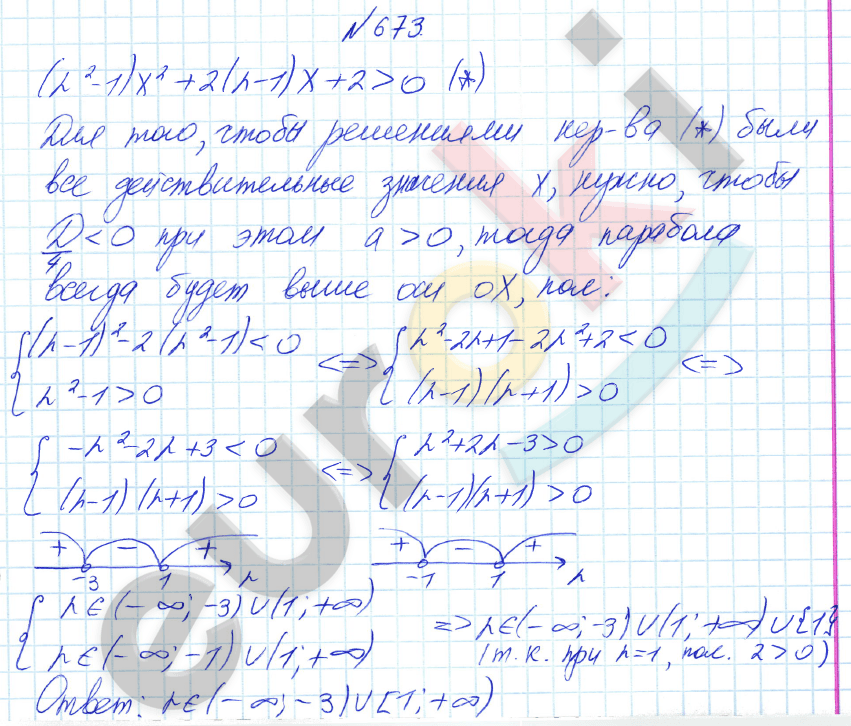 №673.
(r²-1)x²+2(r-1)x+2>0 (*)
Для того, чтобы решениями нер-ва (*) были
все действительные значения x, нужно, чтобы
D/4<0 при этом a>0, тогда парабола
всегда будет выше оси OX, пол:
{(r-1)²-2(r²-1)<0 <=> {r²-2r+1-2r²+2<0 <=>
r²-1>0 (r-1)(r+1)>0
{-r²-2r+3<0 <=> {r²+2r-3>0
(r-1)(r+1)>0 (r-1)(r+1)>0
+ - + + - +
-3 1 r -1 1 r
{r∈(-∞;-3)∪(1;+∞)
=> r∈(-∞;-3)∪(1;+∞)∪{1}
r∈(-∞;-1)∪(1;+∞) (т.к. при r=1, пол. 2>0)
Ответ: r∈(-∞;-3)∪[1;+∞)
euroki